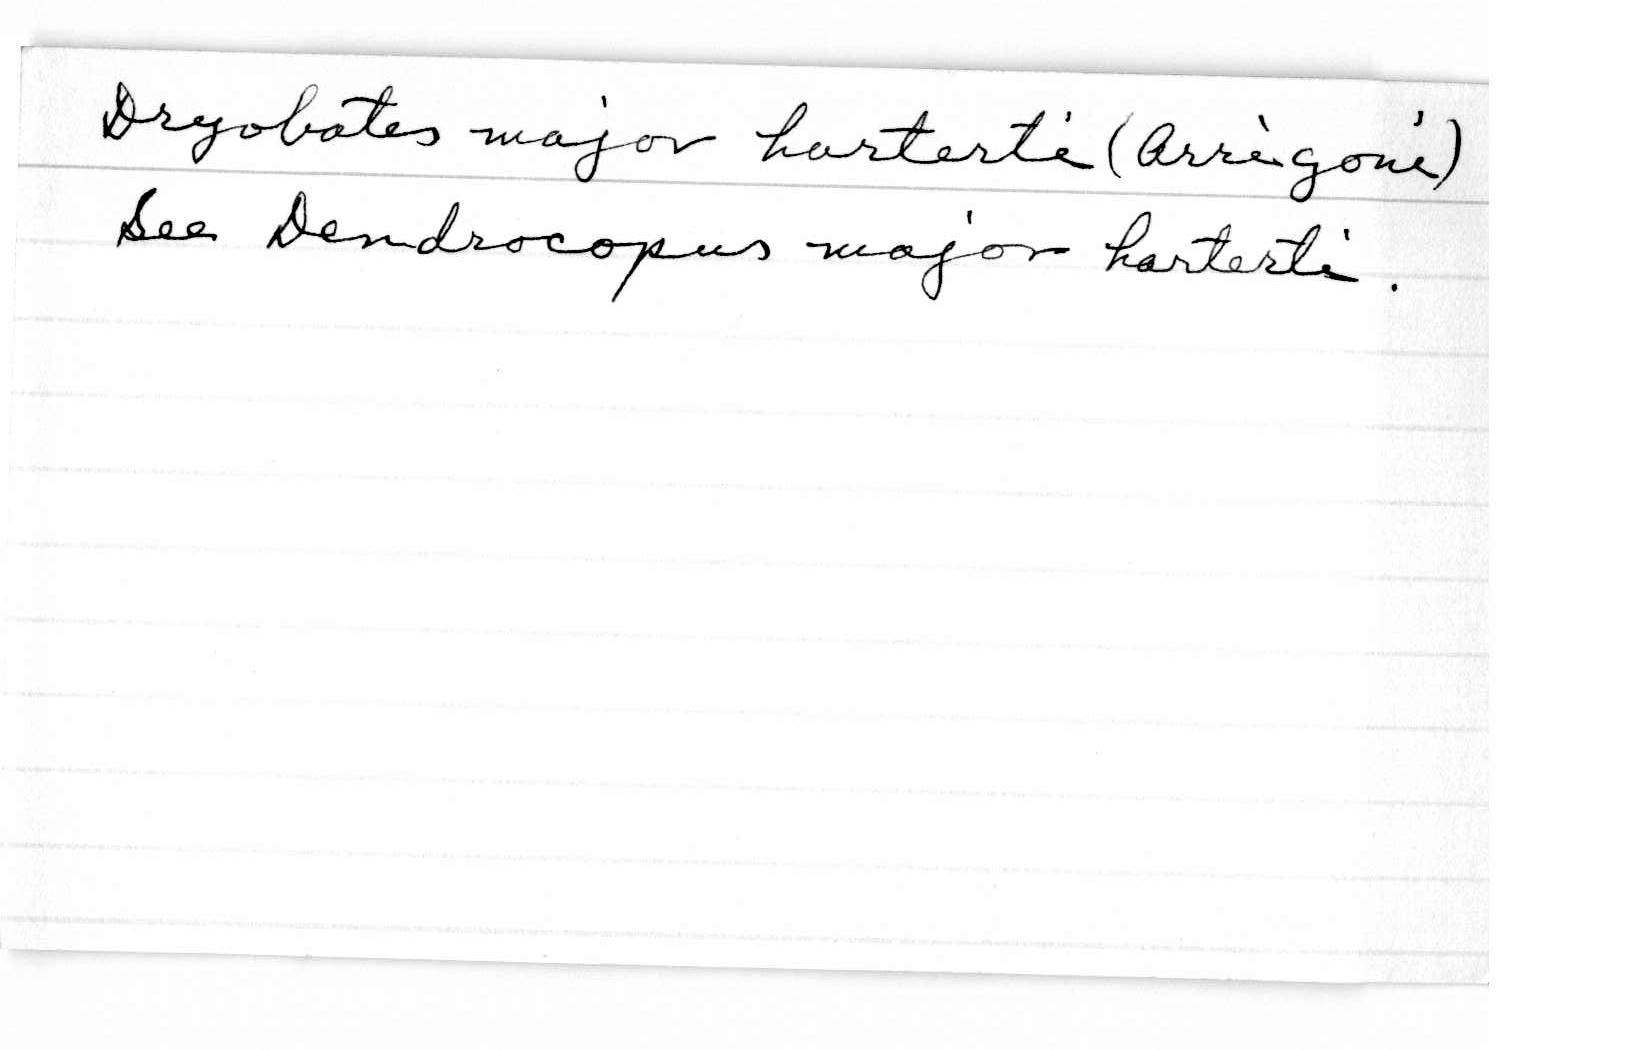 Dryobates major harterti (Arrigoni)
See Dendrocopus major harterti.